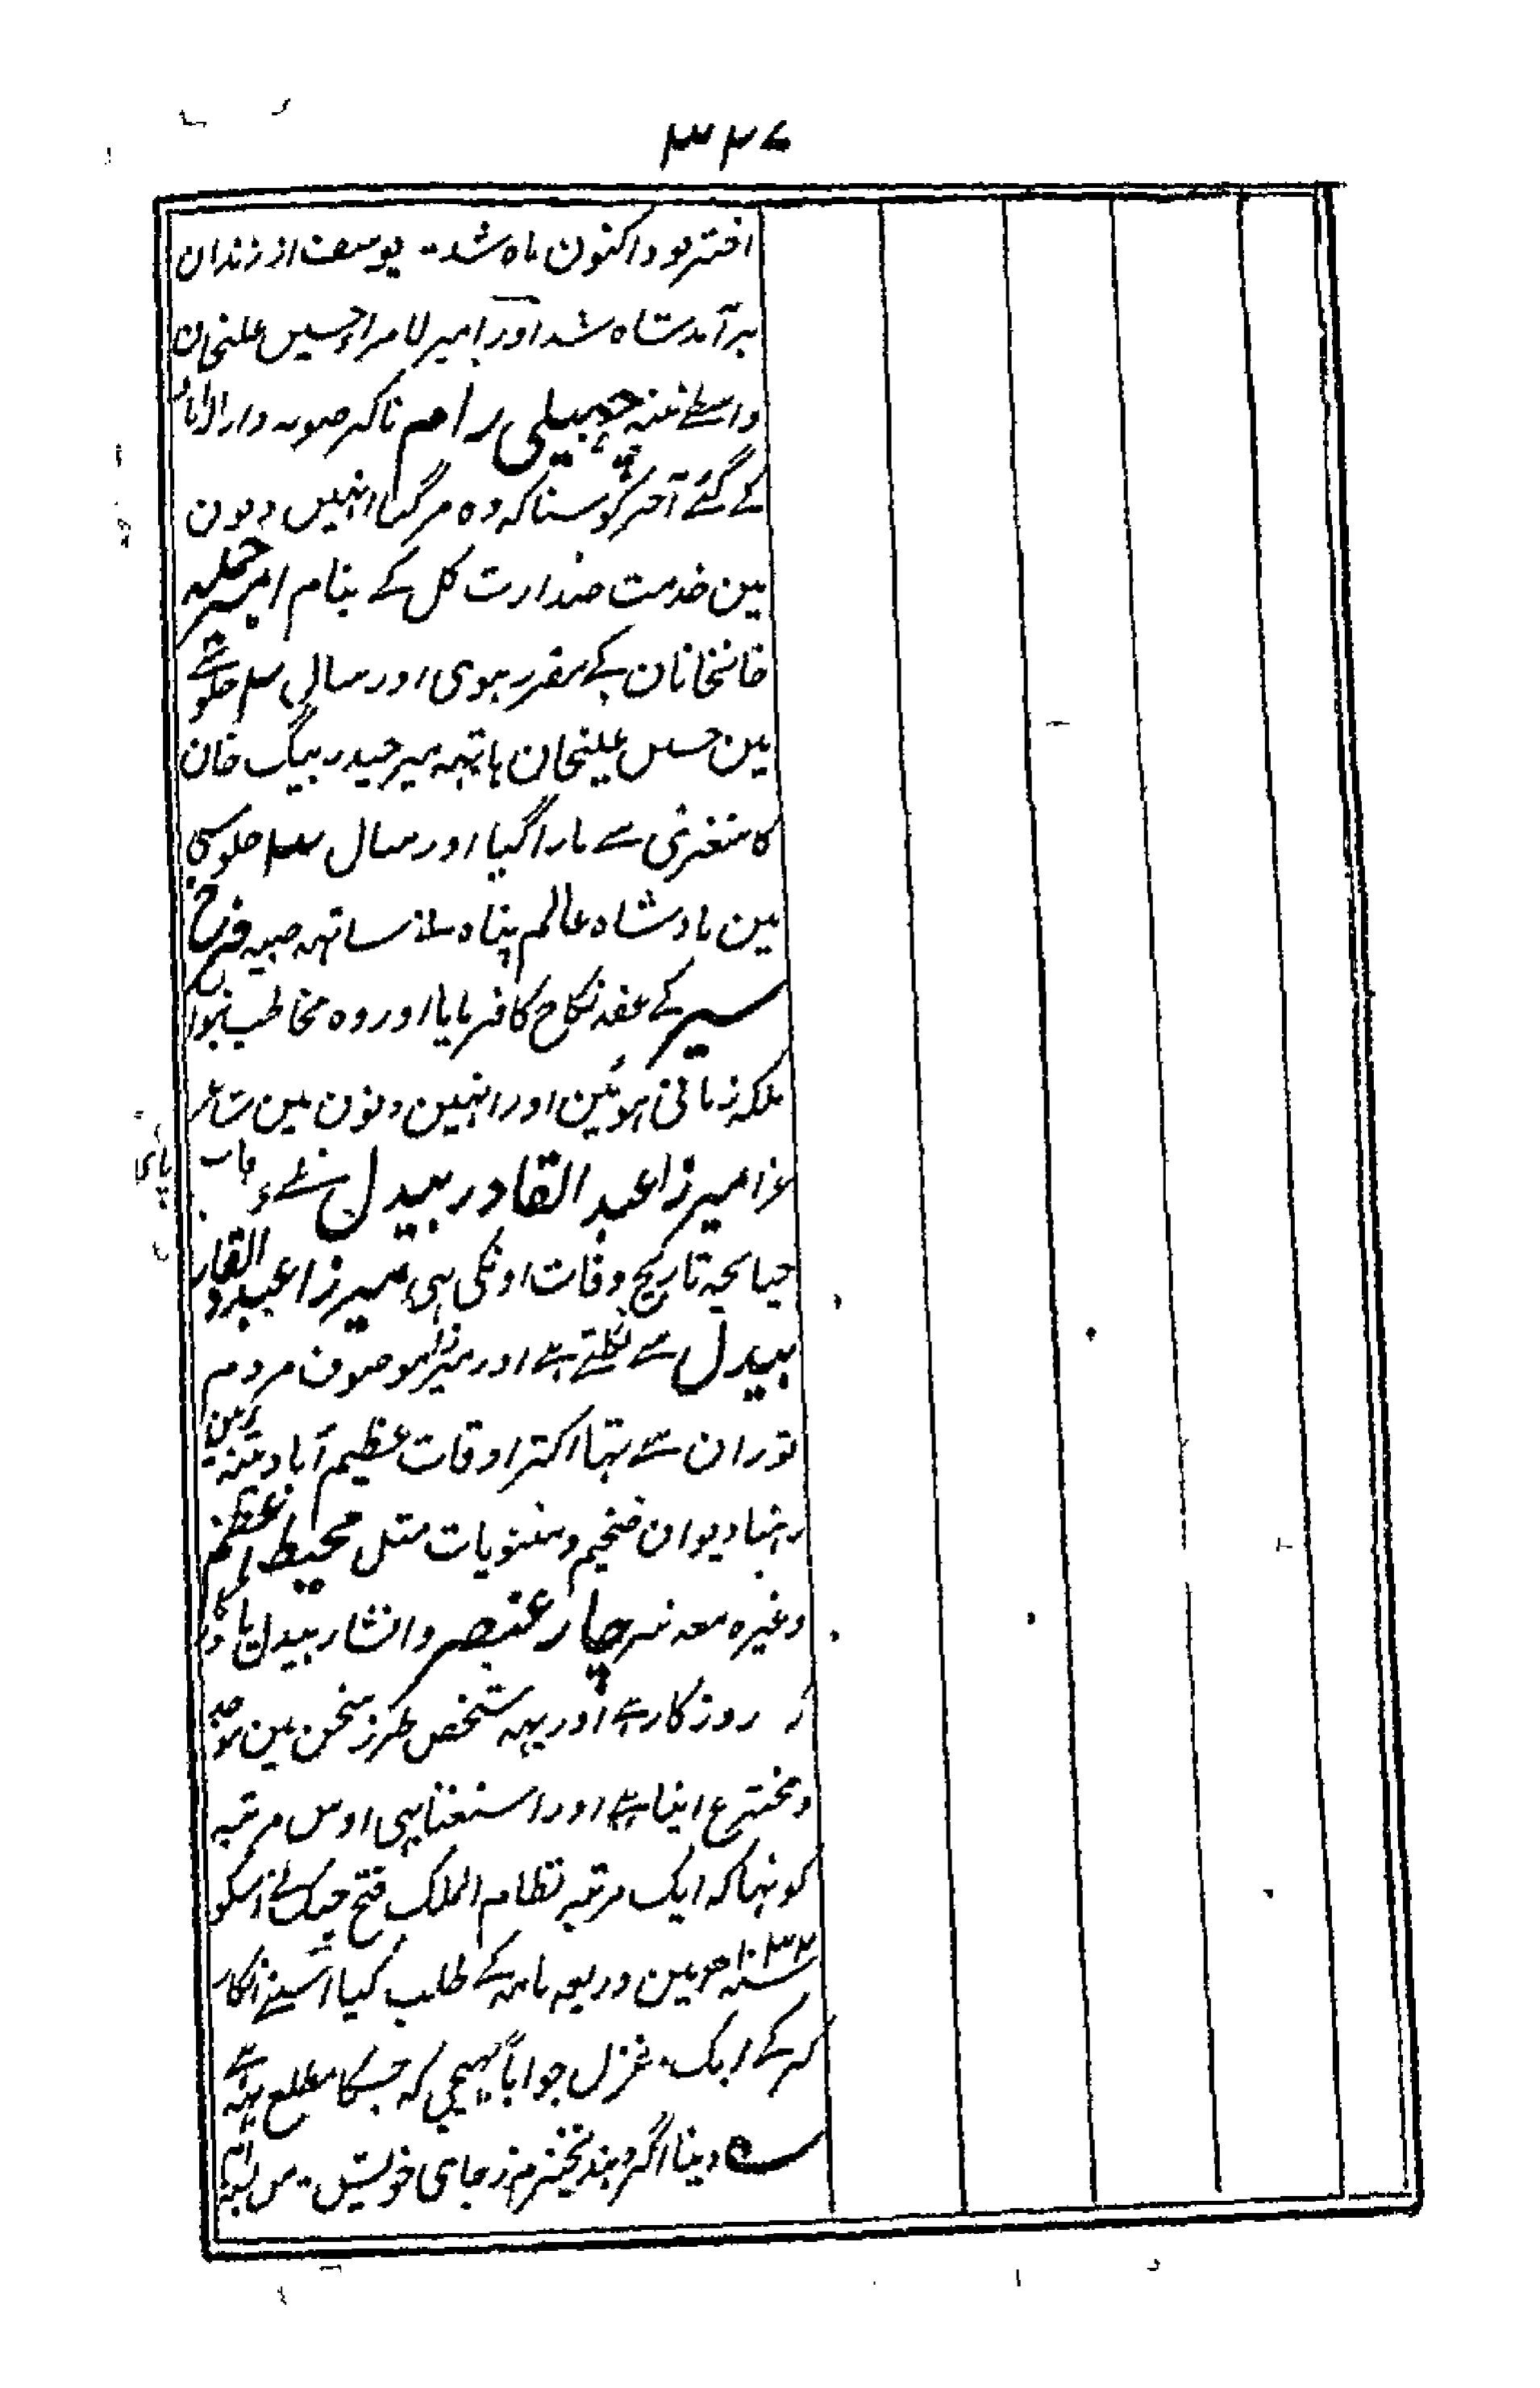 ۳۲۷
اختر بود اکنون ماہ شد۔ یوسف از زندان
برآمد شاہ شد اور امیر لامراء حسین علیخان
واسطے تنبیہ چھبیلی رام ناگر صوبہ دار الہ آباد
کے گئے آخر کو سنا کہ وہ مر گیا انہیں دنون
مین خدمت صدارت کل کے بنام امیر جملہ
خانخانان کے مقرر ہوی اور سال ۲ جلوسے
مین حسین علیخان ہاتہہ میر حیدر بیگ خان
کاشغری سے مارا گیا اور سال ۳ جلوسی
مین بادشاہ عالم پناہ نے ساتہہ صبیہ فرخ
سیر کے عقد نکاح کا فرمایا اور وہ مخاطب بنواب
ملکہ زمانی ہوئین اور انہین دنون مین شاعر
غرا میرزا عبد القادر بیدل نے وفات پائی
چنانچہ تاریخ وفات اونکی ہی میرزا عبد القادر
بیدل سے نکلتے ہے اور میرزا موصوف مردم
توران سے تہا اکثر اوقات عظیم آباد پٹنہ مین
رہتا دیوان ضخیم و مثنویات مثل محیط اعظم
وغیرہ معہ نثر چار عنصر و انشاء بیدل یادگا
ر روزگار ہے اور یہہ شخص طرز سخن مین موجد
و مخترع اپنا ہے اور استغنا بہی اوس مرتبہ
کو تہا کہ ایک مرتبہ نظام الملک فتح جنگ نے اسکو
سنہ ۱۰۳۲ ھ مین ذریعہ نامہ کے طلب کیا اسنے انکار
کر کے ایک غزل جواباً بہیجی کہ جسکا مطلع یہہ ہے
دنیا اگر دہند نخیزم ز جای خویش۔ من بستہ ام